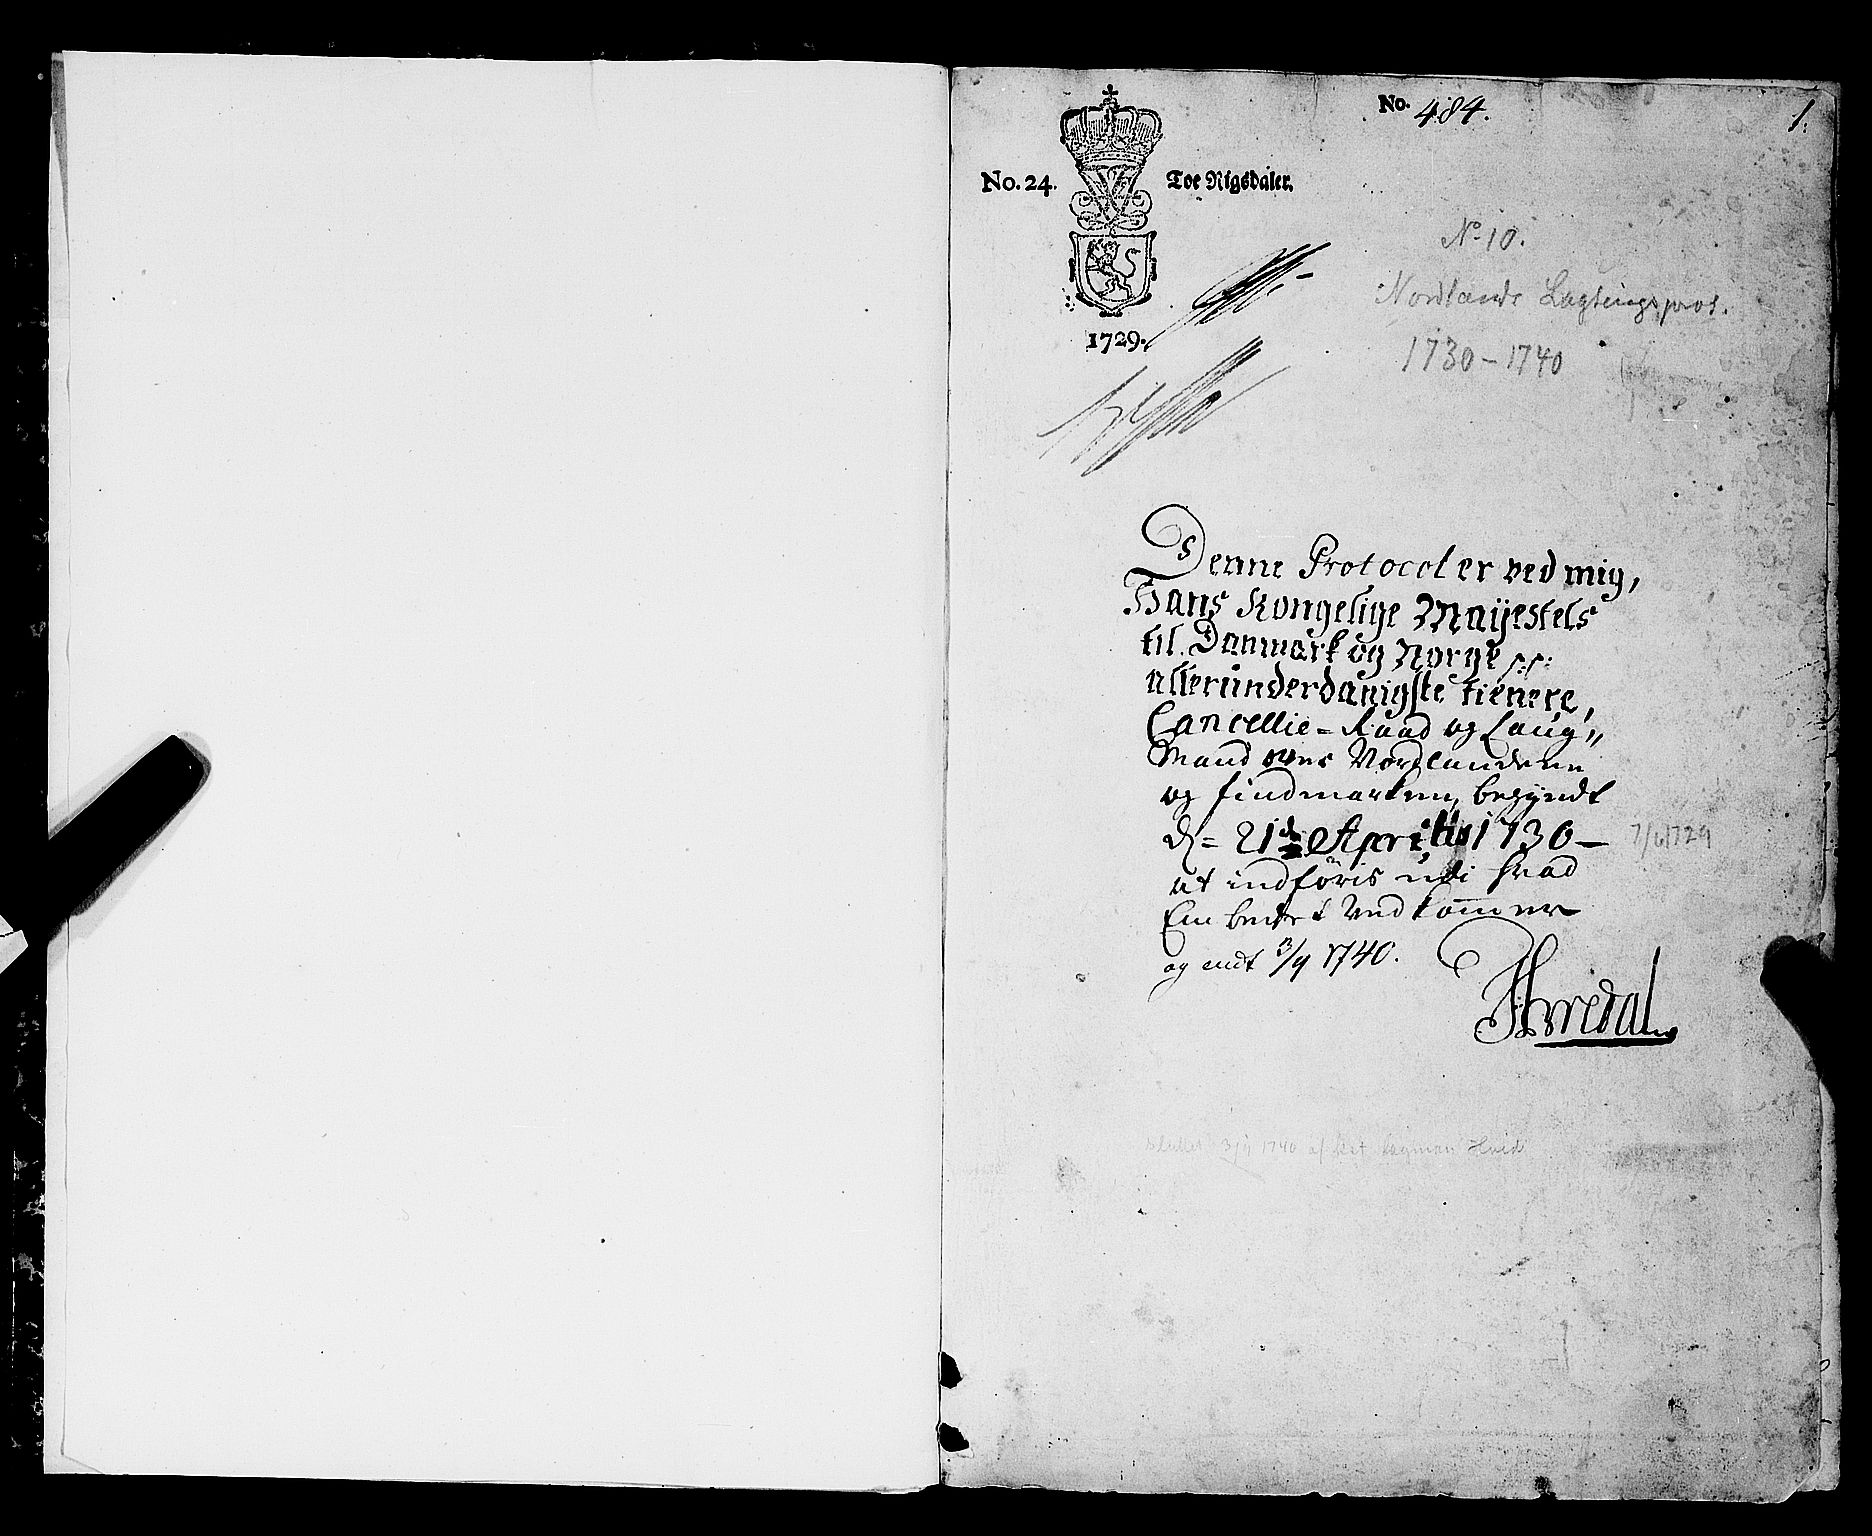 No. 484.
1.
No. 24. Toe Rigsdaler.
1729.
No 10.
Nordlands Lagtingsprot.
1730-1740
Denne Protocol er ved mig,
Hans Kongelige Mayestets
til Danmark og Norge p:p:
allerunderdanigste tienere,
Cancellie=Raad og Laug„
Mand over Nordlandene
og findmarken, begyndt
d= 21de Aprilis 1730 —
7/6 1729
at indføris udi hvad
Embedet Vedkom̄er
og endt 3/9 1740.
Hvedal
Sluttet 3/9 1740 af lagman Hvid